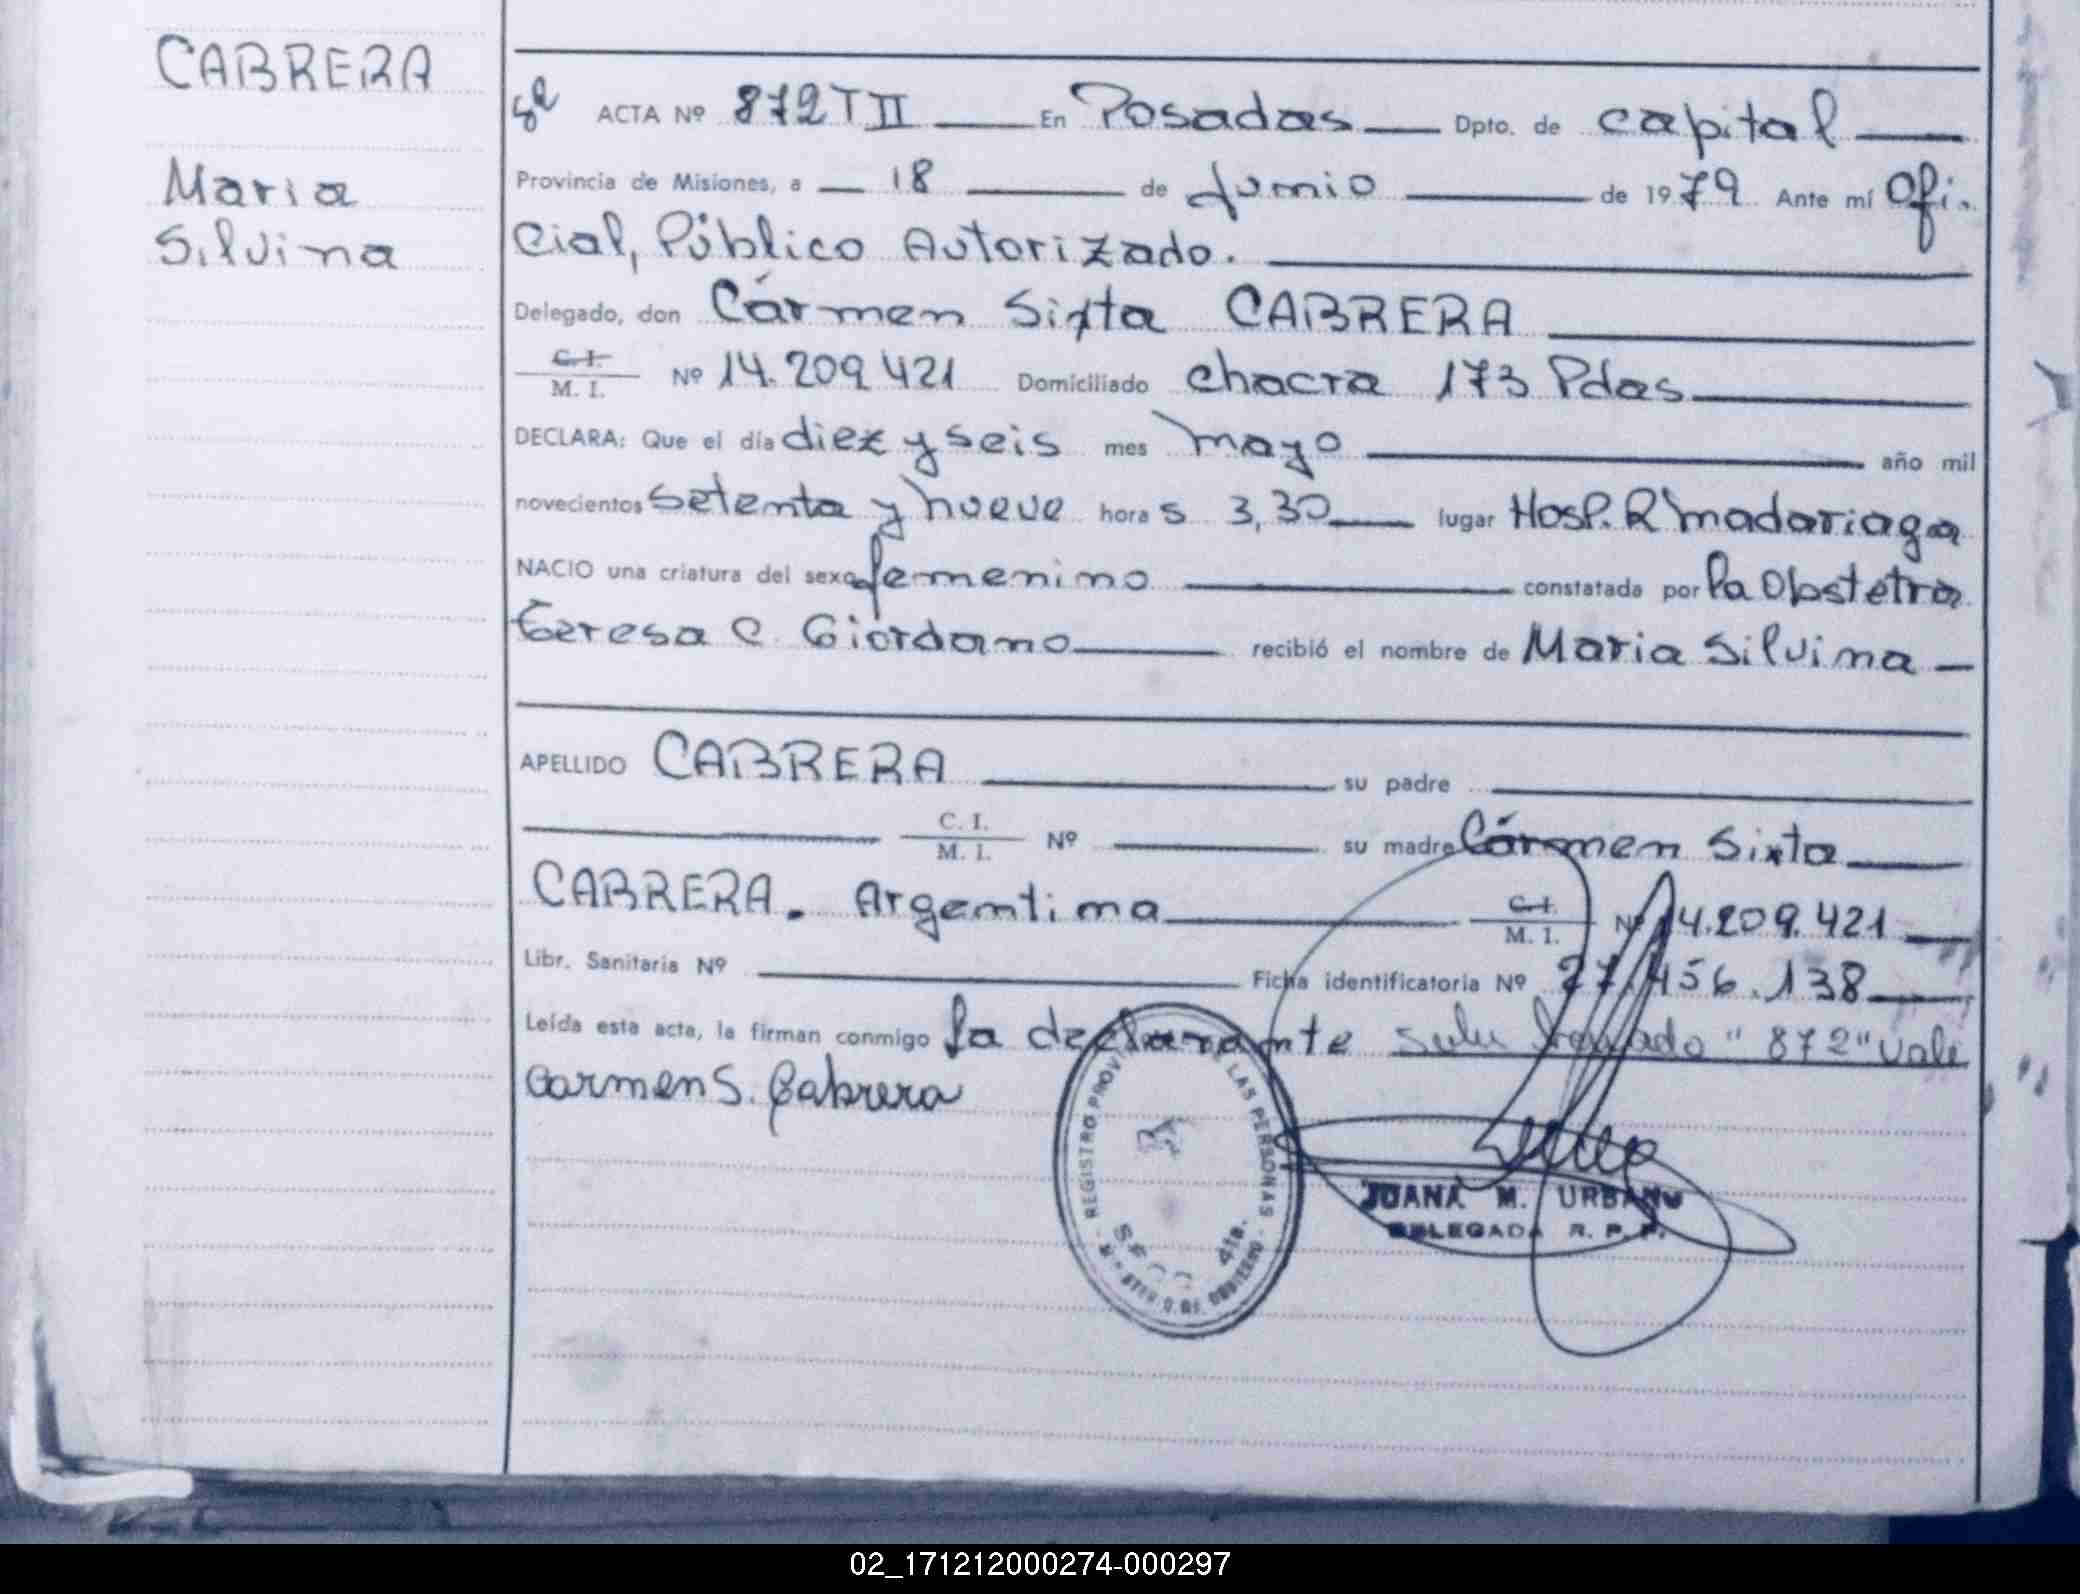 CABRERA
Maria
Silvina
ACTA Nº 872 T II En Posadas Dpto. de capital
Provincia de Misiones, a 18 de Junio de 1979 Ante mí Ofi-
cial, Público Autorizado.
Delegado, don Cármen Sixta CABRERA
C. I.
M. I. Nº 14.209.421 Domiciliado chacra 173 Pdas
DECLARA: Que el día diez y seis mes mayo año mil
novecientos setenta y nueve hora s 3,30 lugar Hosp. R madariaga
NACIO una criatura del sexo femenino constatada por la Obstetra
Teresa C. Giordano recibió el nombre de Maria Silvina
APELLIDO CABRERA su padre
C. I.
M. I. Nº su madre Cármen Sixta
CABRERA. Argentina C. I.
M. I. Nº 14.209.421
Libr. Sanitaria Nº Ficha identificatoria Nº 27.456.138
Leída esta acta, la firman conmigo la declarante "872" vale
Carmen S. Cabrera
REGISTRO PROV LAS PERSONAS
4ta.
JUANA M. URBANO
DELEGADA R. P. P.
02_171212000274-000297